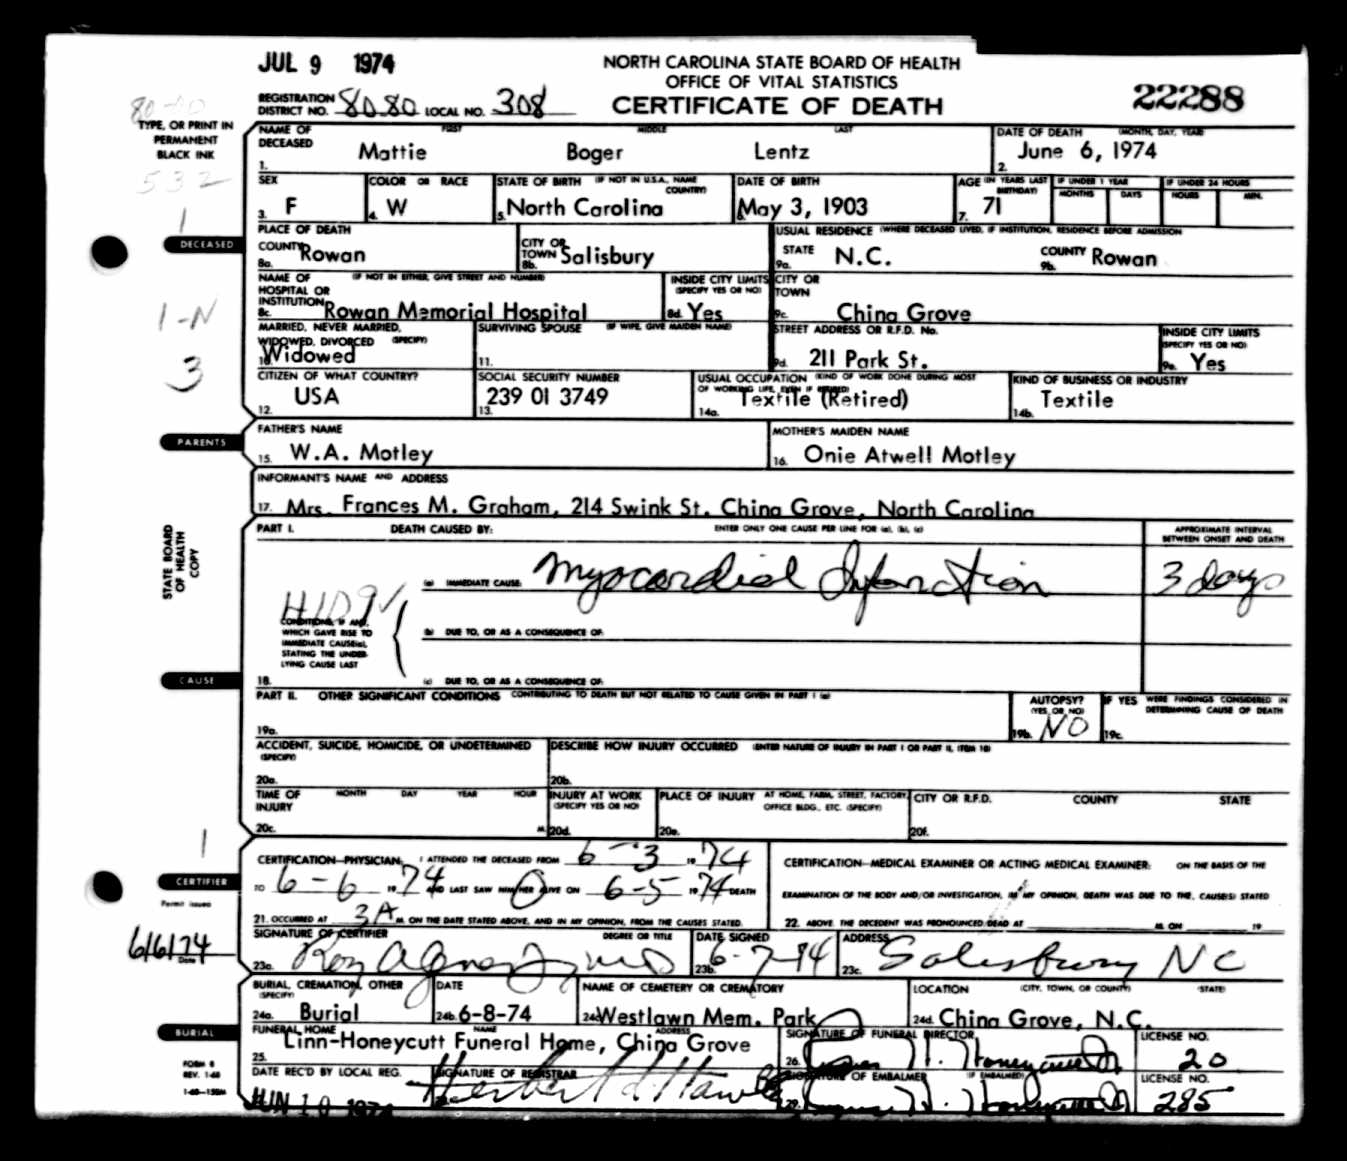 JUL 9 1974
NORTH CAROLINA STATE BOARD OF HEALTH
OFFICE OF VITAL STATISTICS
CERTIFICATE OF DEATH
22288
REGISTRATION DISTRICT NO. 8080 LOCAL NO. 308
TYPE, OR PRINT IN PERMANENT BLACK INK
532
1
NAME OF DECEASED FIRST MIDDLE LAST
1. Mattie Boger Lentz
DATE OF DEATH (MONTH, DAY, YEAR)
2. June 6, 1974
SEX
3. F
COLOR OR RACE
4. W
STATE OF BIRTH (IF NOT IN U.S.A., NAME COUNTRY)
5. North Carolina
DATE OF BIRTH
6. May 3, 1903
AGE (IN YEARS LAST BIRTHDAY)
7. 71
IF UNDER 1 YEAR MONTHS DAYS
IF UNDER 24 HOURS HOURS MIN.
DECEASED
PLACE OF DEATH
COUNTY
8a. Rowan
CITY OR TOWN
8b. Salisbury
USUAL RESIDENCE (WHERE DECEASED LIVED, IF INSTITUTION, RESIDENCE BEFORE ADMISSION
STATE
9a. N.C.
COUNTY
9b. Rowan
1-N
3
NAME OF HOSPITAL OR INSTITUTION (IF NOT IN EITHER, GIVE STREET AND NUMBER)
8c. Rowan Memorial Hospital
INSIDE CITY LIMITS (SPECIFY YES OR NO)
8d. Yes
CITY OR TOWN
9c. China Grove
MARRIED, NEVER MARRIED, WIDOWED, DIVORCED (SPECIFY)
10. Widowed
SURVIVING SPOUSE (IF WIFE, GIVE MAIDEN NAME)
11.
STREET ADDRESS OR R.F.D. No.
9d. 211 Park St.
INSIDE CITY LIMITS (SPECIFY YES OR NO)
9e. Yes
CITIZEN OF WHAT COUNTRY?
12. USA
SOCIAL SECURITY NUMBER
13. 239 01 3749
USUAL OCCUPATION (KIND OF WORK DONE DURING MOST OF WORKING LIFE, EVEN IF RETIRED)
14a. Textile (Retired)
KIND OF BUSINESS OR INDUSTRY
14b. Textile
PARENTS
FATHER'S NAME
15. W.A. Motley
MOTHER'S MAIDEN NAME
16. Onie Atwell Motley
INFORMANT'S NAME AND ADDRESS
17. Mrs. Frances M. Graham, 214 Swink St. China Grove, North Carolina
STATE BOARD OF HEALTH COPY
PART I. DEATH CAUSED BY: ENTER ONLY ONE CAUSE PER LINE FOR (a), (b), (c)
APPROXIMATE INTERVAL BETWEEN ONSET AND DEATH
(a) IMMEDIATE CAUSE: Myocardial Infarction 3 days
CONDITIONS, IF ANY, WHICH GAVE RISE TO IMMEDIATE CAUSE(a), STATING THE UNDERLYING CAUSE LAST
(b) DUE TO, OR AS A CONSEQUENCE OF:
CAUSE
18. (c) DUE TO, OR AS A CONSEQUENCE OF:
PART II. OTHER SIGNIFICANT CONDITIONS CONTRIBUTING TO DEATH BUT NOT RELATED TO CAUSE GIVEN IN PART I (a)
19a.
AUTOPSY? (YES OR NO)
19b. NO
IF YES WERE FINDINGS CONSIDERED IN DETERMINING CAUSE OF DEATH
19c.
ACCIDENT, SUICIDE, HOMICIDE, OR UNDETERMINED (SPECIFY)
20a.
DESCRIBE HOW INJURY OCCURRED (ENTER NATURE OF INJURY IN PART I OR PART II, ITEM 18)
20b.
TIME OF INJURY MONTH DAY YEAR HOUR
20c. M.
INJURY AT WORK (SPECIFY YES OR NO)
20d.
PLACE OF INJURY AT HOME, FARM, STREET, FACTORY, OFFICE BLDG., ETC. (SPECIFY)
20e.
CITY OR R.F.D. COUNTY STATE
20f.
1
CERTIFIER
Permit issued
6/6/74
Date
CERTIFICATION—PHYSICIAN: I ATTENDED THE DECEASED FROM 6-3 1974
TO 6-6 1974 AND LAST SAW HIM/HER ALIVE ON 6-5 1974 DEATH
21. OCCURRED AT 3A M. ON THE DATE STATED ABOVE, AND IN MY OPINION, FROM THE CAUSES STATED.
CERTIFICATION—MEDICAL EXAMINER OR ACTING MEDICAL EXAMINER: ON THE BASIS OF THE
EXAMINATION OF THE BODY AND/OR INVESTIGATION, IN MY OPINION, DEATH WAS DUE TO THE CAUSE(S) STATED
22. ABOVE. THE DECEDENT WAS PRONOUNCED DEAD AT M. ON 19
SIGNATURE OF CERTIFIER DEGREE OR TITLE
23a.
DATE SIGNED
23b. 6-7-74
ADDRESS
23c. Salisbury NC
BURIAL, CREMATION, OTHER (SPECIFY)
24a. Burial
DATE
24b. 6-8-74
NAME OF CEMETERY OR CREMATORY
24c Westlawn Mem. Park
LOCATION (CITY, TOWN, OR COUNTY) (STATE)
24d. China Grove, N.C.
BURIAL
FUNERAL HOME NAME ADDRESS
25. Linn-Honeycutt Funeral Home, China Grove
SIGNATURE OF FUNERAL DIRECTOR
26.
LICENSE NO.
20
FORM 8
REV. 1-68
1-68—150M
DATE REC'D BY LOCAL REG.
JUN 10 1974
SIGNATURE OF REGISTRAR
SIGNATURE OF EMBALMER (IF EMBALMED)
29.
LICENSE NO.
285